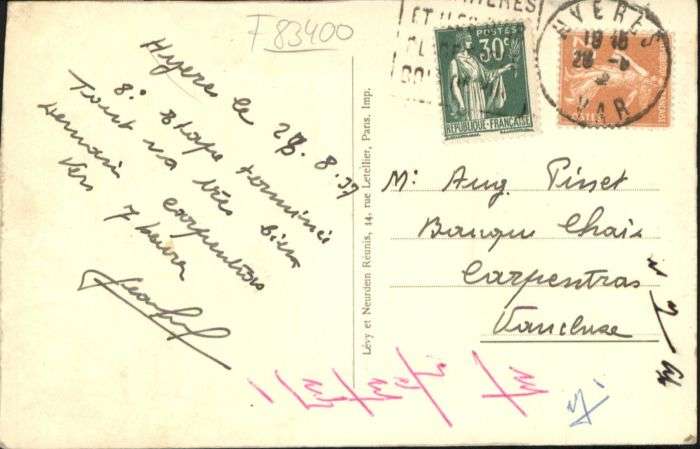 F 83400
Hyères le 28.8.37
8e Etape terminée
Tout va très bien
Demain Carpentras
vers 7 heures
Lévy et Neurdein Réunis, 44, rue Letellier, Paris, Imp.
POSTES
30c
REPUBLIQUE-FRANÇAISE
HYERES
VAR
POSTES
Mr Aug. Pinet
Banque Chaix
Carpentras
Vaucluse